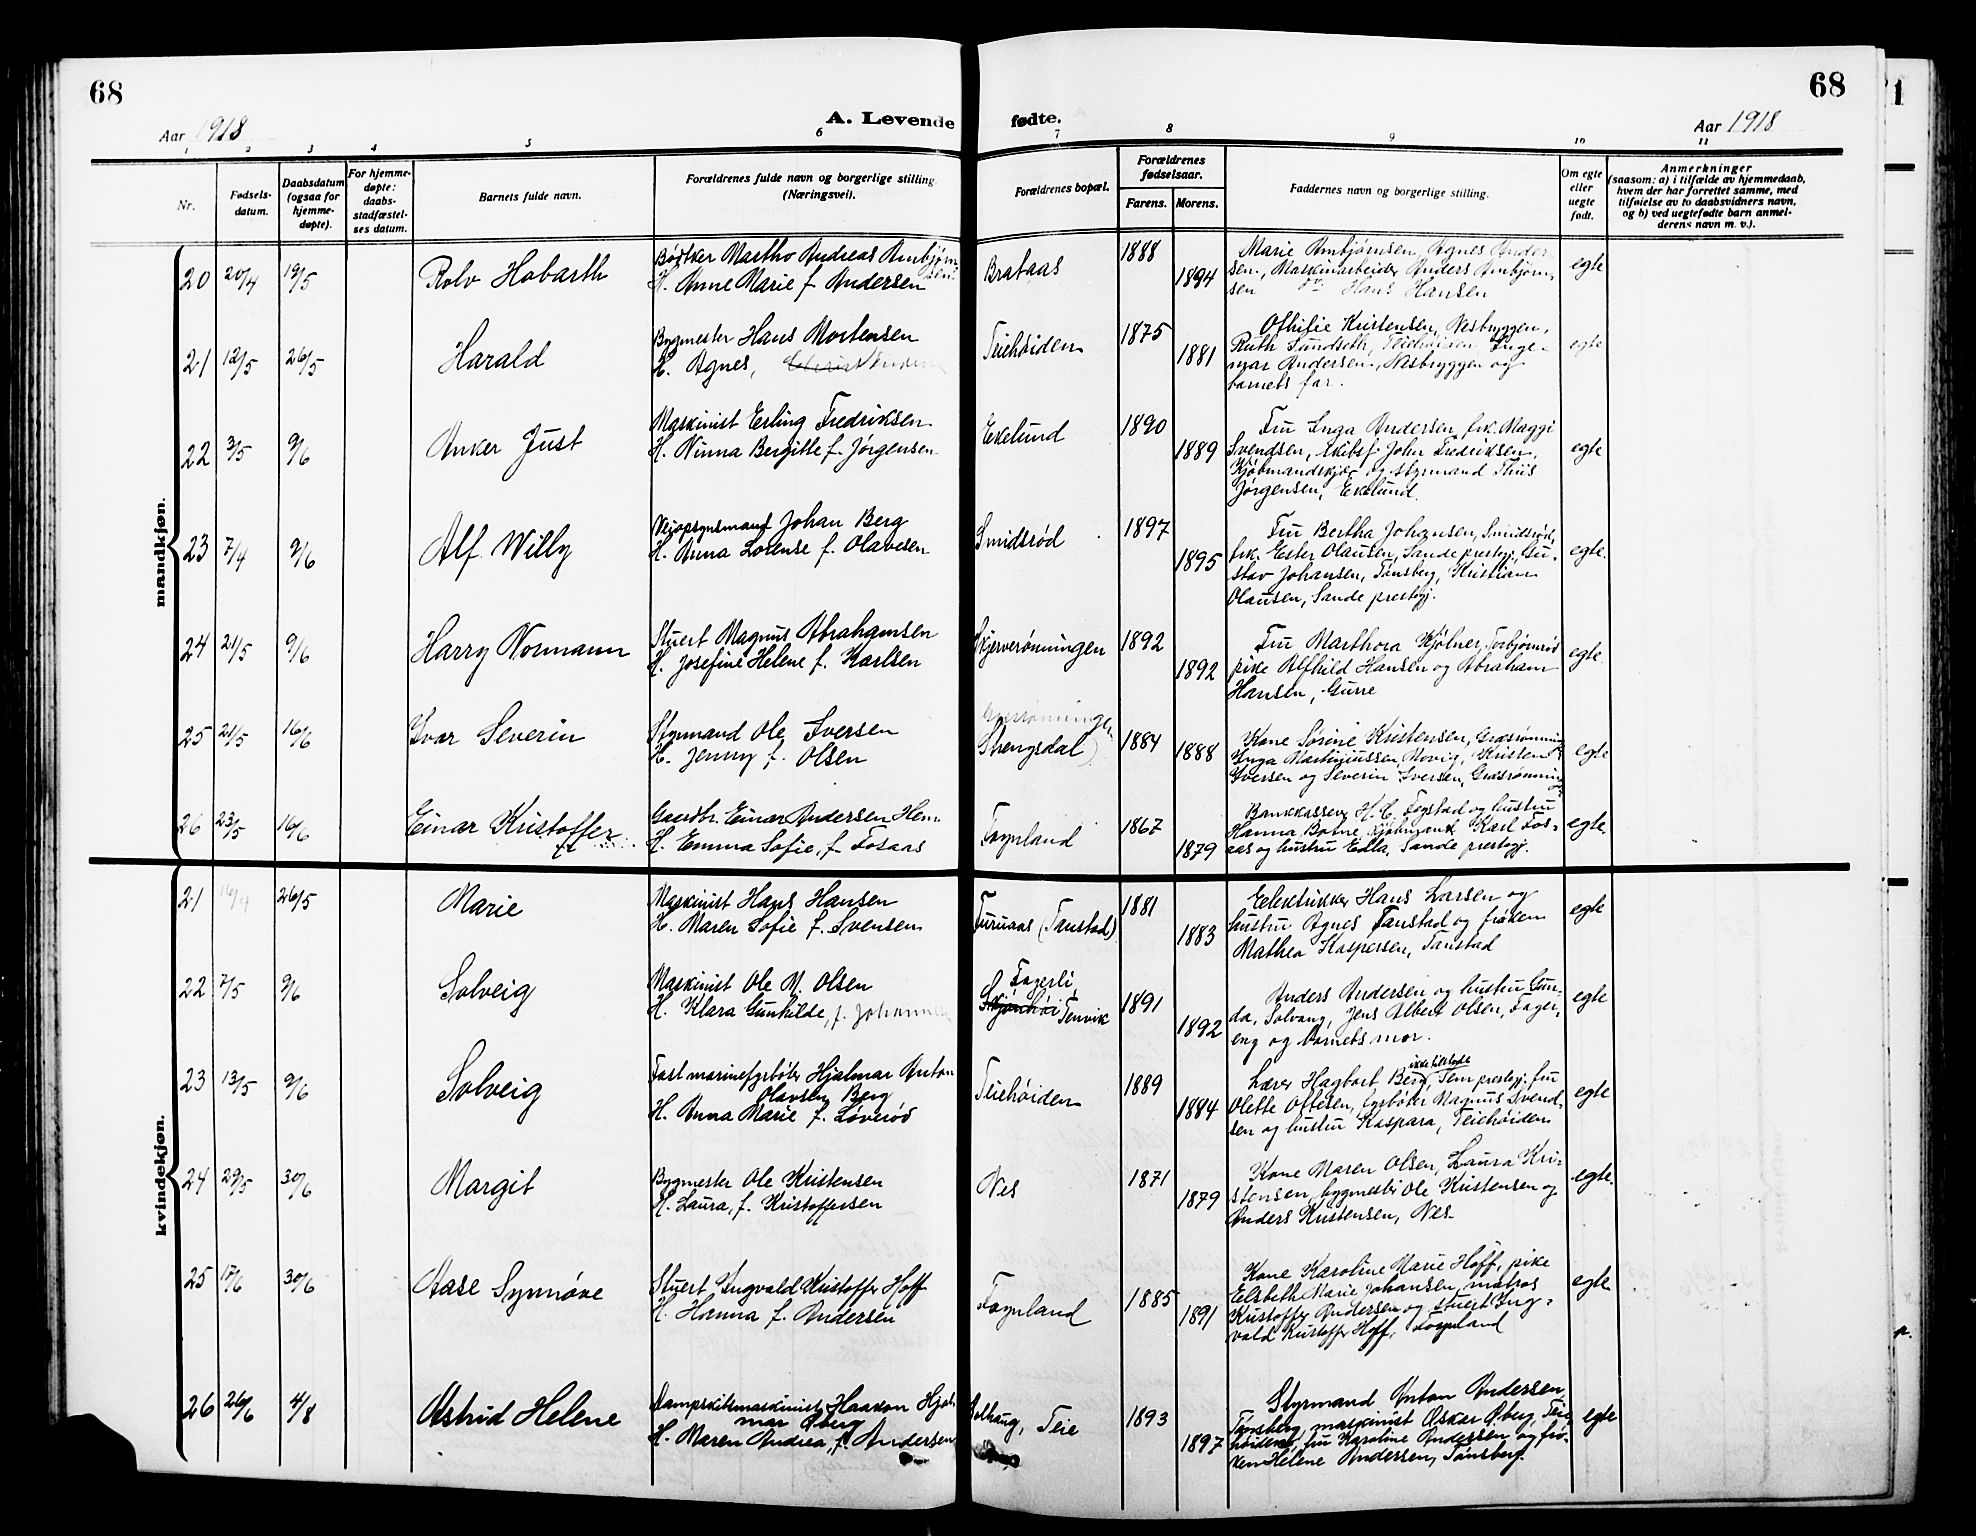 68
68
Aar 1918
A. Levende
fødte.
Aar 1918
1 2 3 4 5 6 7 8 9 10 11
Nr.
Fødsels-
datum.
Daabsdatum
(ogsaa for
hjemme-
døpte).
For hjemme-
døpte:
daabs-
stadfæstel-
ses datum.
Barnets fulde navn.
Forældrenes fulde navn og borgerlige stilling
(Næringsvei).
Forældrenes bopæl.
Forældrenes
fødselsaar.
Farens. Morens.
Faddernes navn og borgerlige stilling.
Om egte
eller
uegte
født.
Anmerkninger
(saasom: a) i tilfælde av hjemmedaab,
hvem der har forrettet samme, med
tilføielse av to daabsvidners navn,
og b) ved uegtefødte barn anmel-
derens navn m. v.).
mandkjøn.
20 20/4 19/5 Rolv Hobarth
Bødker Martho Andreas Ambjørn
sen
H. Anne Marie f Andersen
Brataas 1888 1894
Marie Ambjørnsen, Agnes Ander
sen, Maskinarbeider Anders Ambjørn
sen Hans Hansen
egte
21 12/5 26/5 Harald
Bygmester Hans Mortensen
H. Agnes,
Teiehøiden 1875 1881
Othilie Kristensen, Nesbryggen,
Ruth Sundseth, Teiehøiden, Inge-
mar Andersen, Nesbryggen og
barnets far.
egte
22 3/5 9/6 Anker Just
Maskinist Erling Fredriksen
H. Ninna Bergitte f. Jørgensen
Ekelund 1890 1889
Fru Inga Andersen, frk. Maggi
Svendsen, skibsf. John Fredriksen,
Kjøbmandskjær og styrmand Thiis
Jørgensen, Ekelund.
egte
23 7/4 9/6 Alf Willy
Veiopsynsmand Johan Berg
H. Anna Lorense f. Olavesen
Smidsrød 1897 1895
Fru Bertha Johansen, Smidsrød,
frk. Ester Olausen, Sande prestegj., Gu-
stav Johansen, Tønsberg, Kristian
Olausen, Sande prestegj.
egte.
24 21/5 9/6 Harry Normann
Stuert Magnus Abrahamsen
H. Josefine Helene f. Karlsen
Skjerverønningen 1892 1892
Fru Marthora Kjølner, Torbjørnrød
pike Alfhild Hansen og Abraham
Hansen, Gurre
egte.
25 21/5 16/6 Ivar Severin
Styrmand Ole Iversen
H. Jenny f. Olsen
Græsrønningen
Strengsdal) 1884 1888
Kone Sørine Kristensen, Græsrønning
Inga Martiniussen, Movig, Kristen
Iversen og Severin Iversen, Græsrønning
egte
26 23/5 16/6 Einar Kristoffer
Gaardbr. Einar Andersen Hem
H. Emma Sofie, f. Fosaas
Føynland 1867 1879
Bankkasserer H. C. Fogstad og hustru
Hanna, Botne, kjøbmand Karl Fos-
aas og hustru Edla, Sande prestegj.
egte
kvindekjøn.
21 14/4 26/5 Marie
Maskinist Hans Hansen
H. Maren Sofie f. Svensen
Furuaas (Tanstad) 1881 1883
Elektriker Hans Larsen og
hustru Agnes Tanstad og frøken
Mathea Kaspersen, Tanstad
egte
22 7/5 9/6 Solveig
Maskinist Ole M. Olsen
H. Klara Gunhilde, f. Johannsen
Fagerli,
Tenvik 1891 1892
Anders Andersen og hustru Gun-
da, Solvang, Jens Albert Olsen, Fager-
eng og barnets mor.
egte
23 13/5 9/6 Solveig
Fast marinefyrbøter Hjalmar Anton
Olavsen Berg
H. Anna Marie f. Løverød
Teiehøiden 1889 1884
ikke tilstede
Lærer Hagbart Berg, Sem prestegj., fru
Olette Oftesen, fyrbøter Magnus Svend-
sen og hustru Kaspara, Teiehøiden
egte
24 29/5 30/6 Margit
Bygmester Ole Kristensen
H. Laura, f. Kristoffersen
Nes 1871 1879
Kone Maren Olsen, Laura Kri-
stensen, bygmester Ole Kristensen og
Anders Kristensen, Nes.
egte.
25 17/6 30/6 Aase Synnøve
Stuert Ingvald Kristoffer Hoff
H. Hanna f. Andersen
Føynland 1885 1891
Kone Karoline Marie Hoff, pike
Elsbeth Marie Johansen, matros
Kristoffer Andersen og stuert Ing-
vald Kristoffer Hoff, Føynland
egte
26 26/6 4/8 Astrid Helene
Dampskibsmaskinist Haakon Hjal-
mar Øberg
H. Maren Andrea f. Andersen
Solhaug, Teie 1893 1897
Styrmand Anton Andersen,
Tønsberg, maskinist Oskar Øberg, Teie
høiden, fru Karoline Andersen og frø-
ken Helene Andersen, Tønsberg.
egte